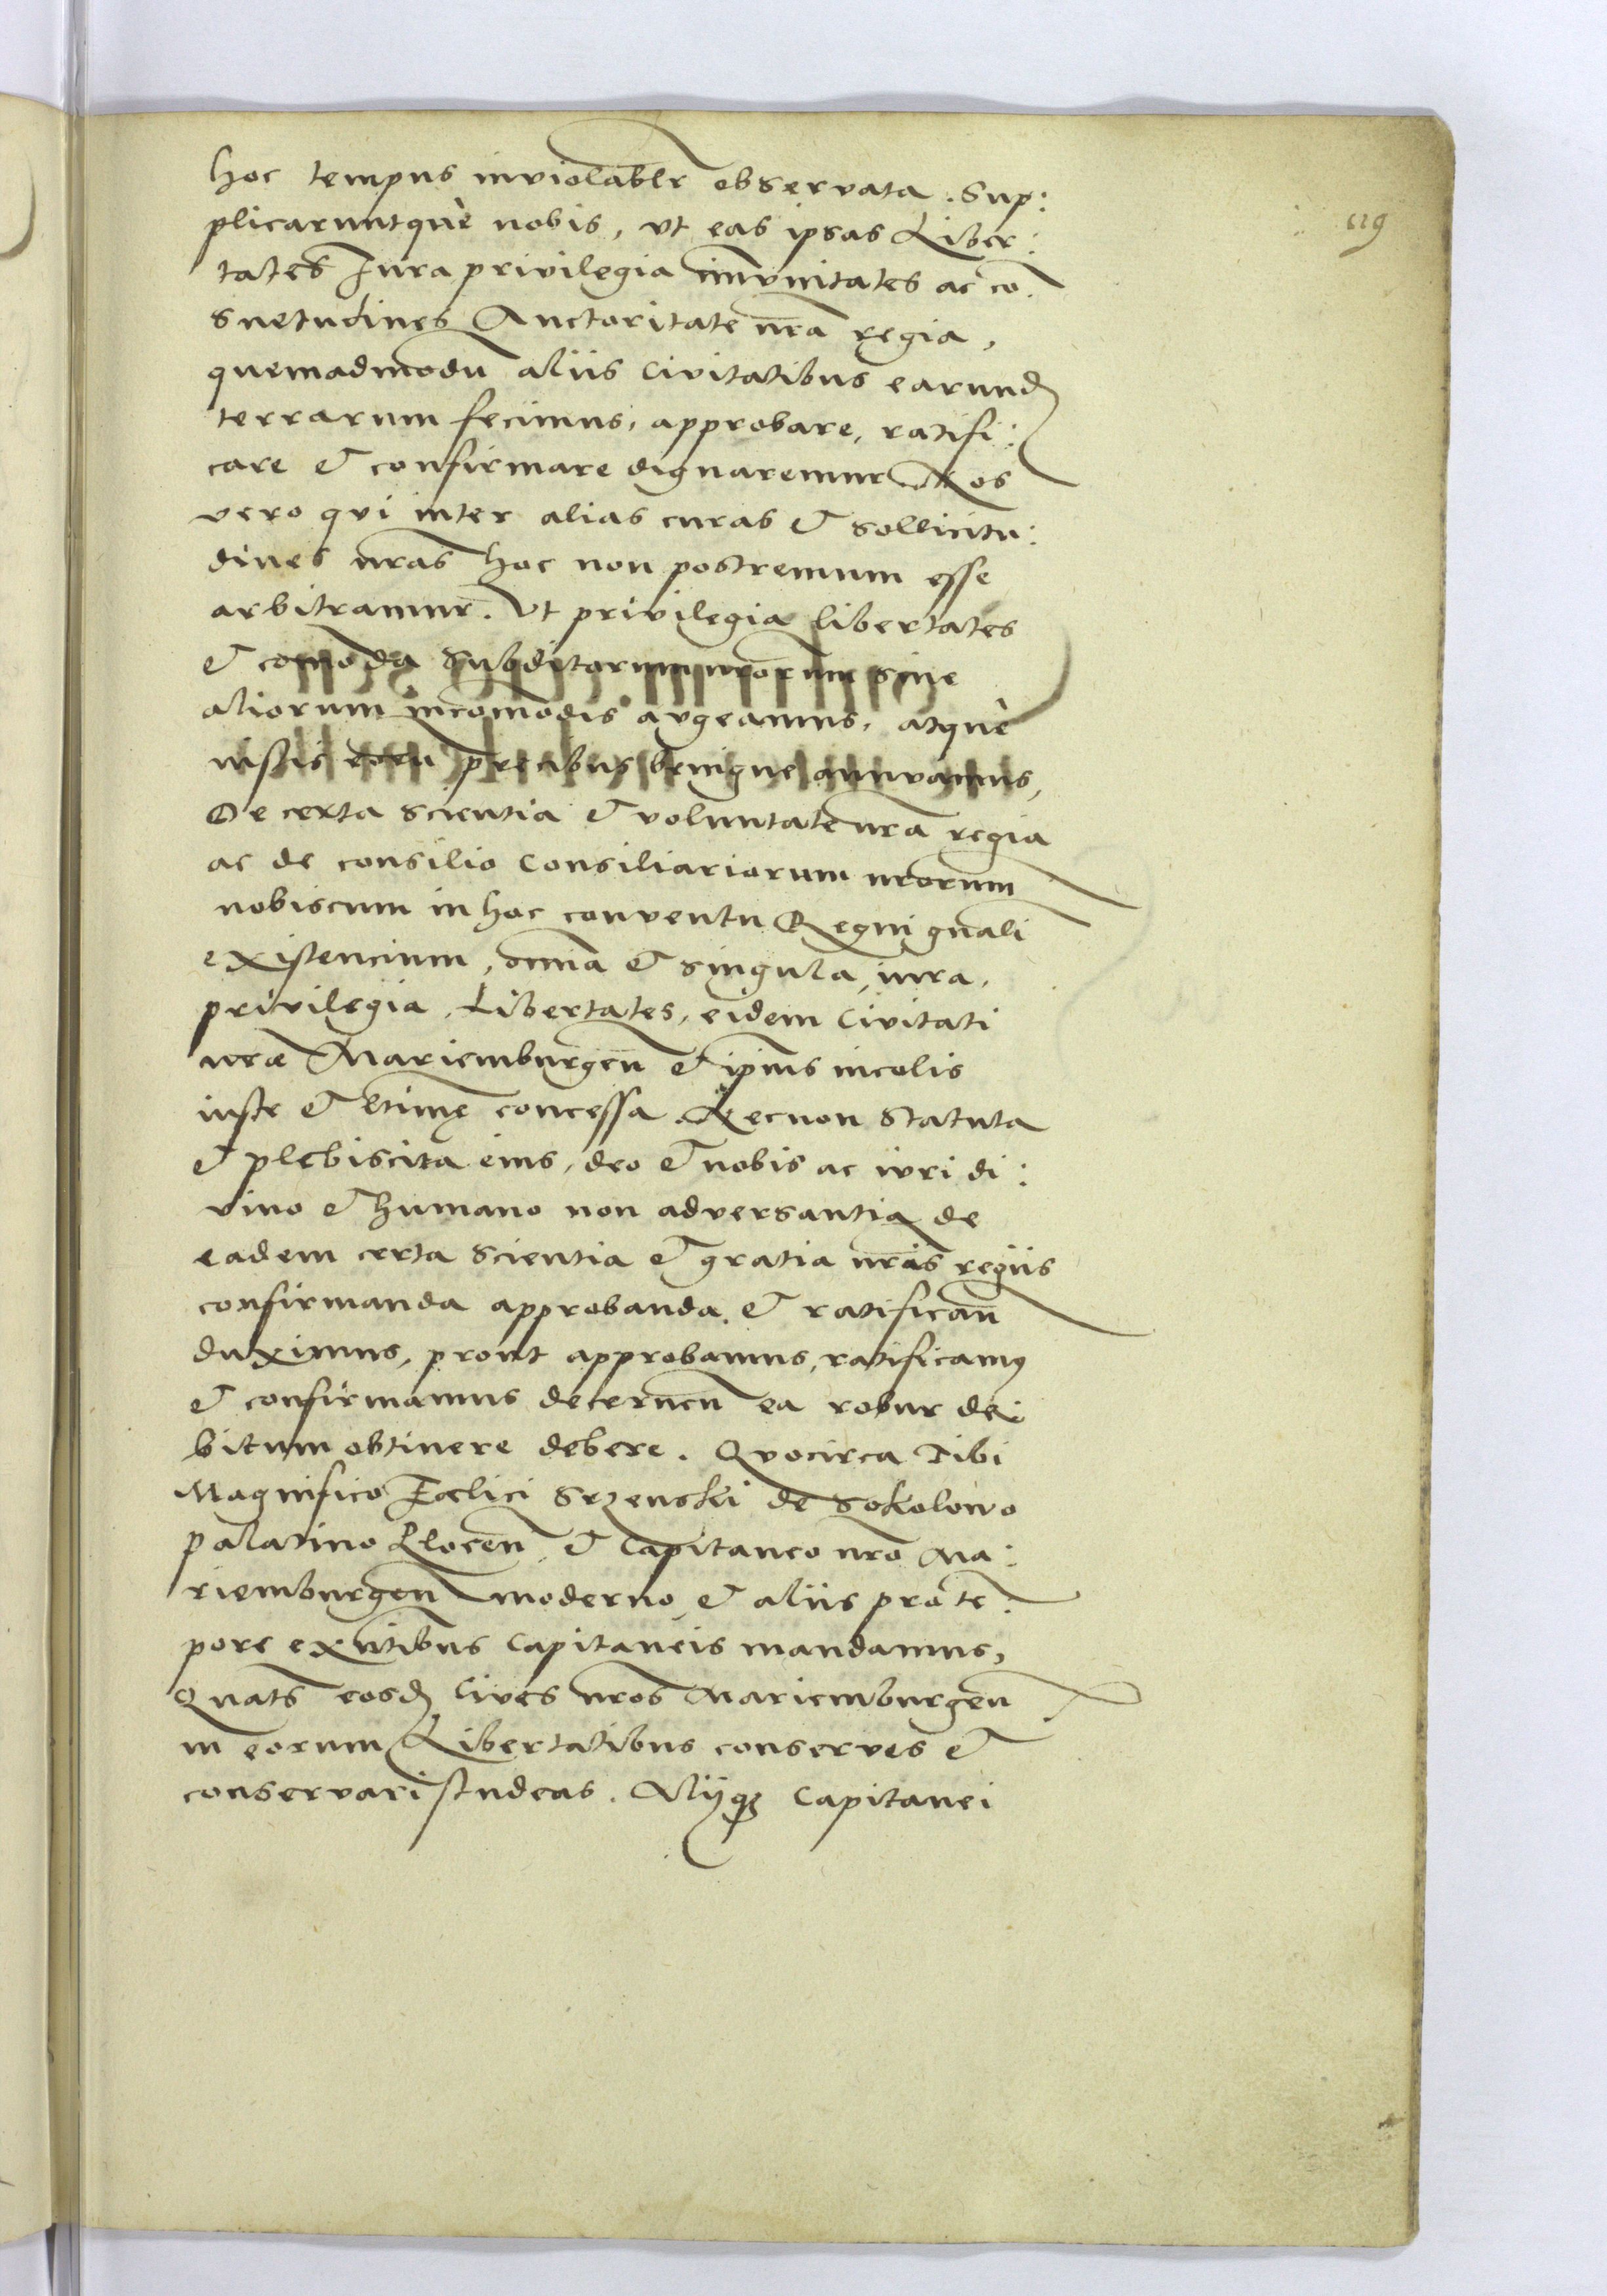 hoc tempus inviolablr observata. Sup:
plicaruntquè nobis, vt eas ipsas Liber:
tates Jura privilegia im̄vnitates ac co:
suetudines Auctoritate nr̄a regia,
quemadmodū aliis Civitatibus earund
terrarum fecimus, approbare, ratifi:
care et confirmare dignaremur. Nos
vero qvi inter alias curas et sollicitu:
dines nr̄as hoc non postremum esse
arbitramur. Vt privilegia libertates
et com̄oda Subditorum nr̄orum sine
aliorum incom̄odis avgeamus, atquè
iustis eorū precibus benigne annvamus,
De certa scientia et voluntate nr̄a regia
ac de consilio Consiliariorum nr̄orum
nobiscum in hoc conventu Regni gn̄ali
existencium, om̄ia et singula, iura,
privilegia, Libertates, eidem Civitati
nr̄æ Mariemburgen̄ et ip̄ius incolis
iuste et ltimę concessa. Necnon Statuta
et plebiscita eius, deo et nobis ac ivri di:
vino et humano non adversantia de
eadem certa Scientia et gratia nr̄is regiis
confirmanda approbanda. et ratifican̄
duximus, prout approbamus, ratificamq
et confirmamus decernen̄ ea robur de:
bitum obtinere debere. Qvocirca Tibi
Magnifico Fœlici Srzenski de Sokolowo
palatino Plocen̄, et Capitaneo nr̄o Ma:
riemburgen̄ moderno, et aliis pro te:
pore exn̄tibus Capitaneis mandamus,
Quat̄s eosd Cives nr̄os Mariemburgen̄
in eorum Libertatibus conserves et
conservari studeas. Alijqꝫ Capitanei